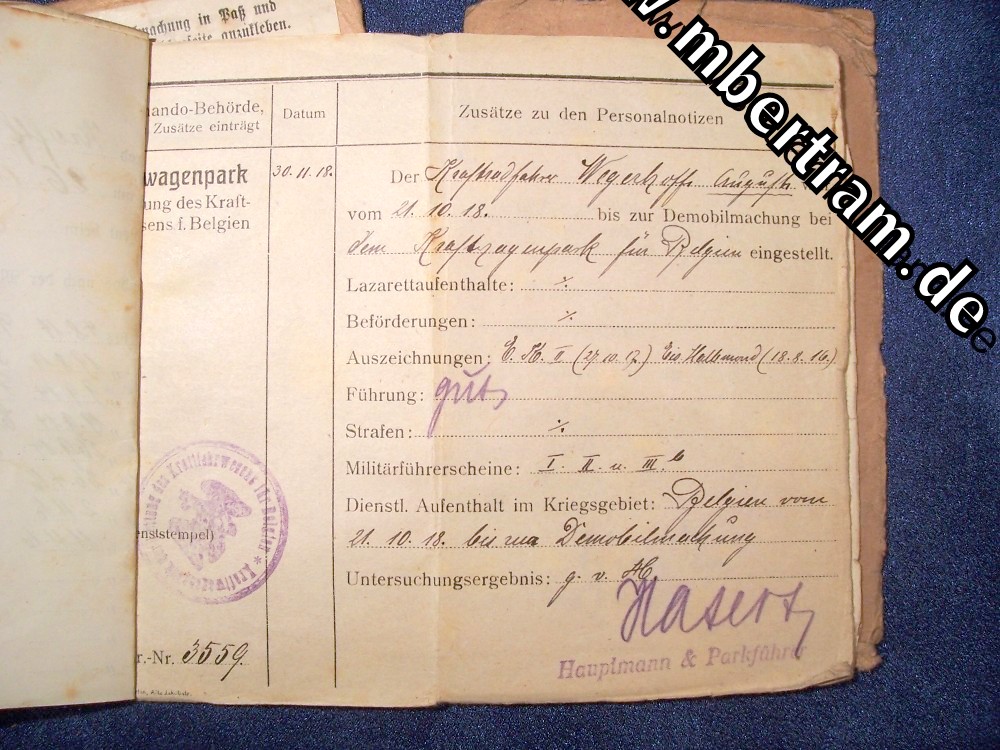 machung in Paß und
seite anzukleben.
www.mbertram.de
e
mando-Behörde,
Zusätze einträgt
Datum
Zusätze zu den Personalnotizen
wagenpark
ung des Kraft-
sens f. Belgien
30.11.18.
Der Kraftradfahrer Wegerhoff August
vom 21.10.18. bis zur Demobilmachung bei
dem Kraftwagenpark für Belgien eingestellt.
Lazarettaufenthalte: ·/.
Beförderungen: ·/.
Auszeichnungen: E. K. II (27.10.17.) Eis. Halbmond (18.8.16.)
Führung: gut
Strafen: ·/.
Militärführerscheine: I. II. u. III.b
Dienstl. Aufenthalt im Kriegsgebiet: Belgien vom
21.10.18. bis zur Demobilmachung
Untersuchungsergebnis: g. v. H.
Hasert
Hauptmann & Parkführer
des Kraftfahrwesens für Belgien * Kraftwagen
enststempel)
r.-Nr. 3559.